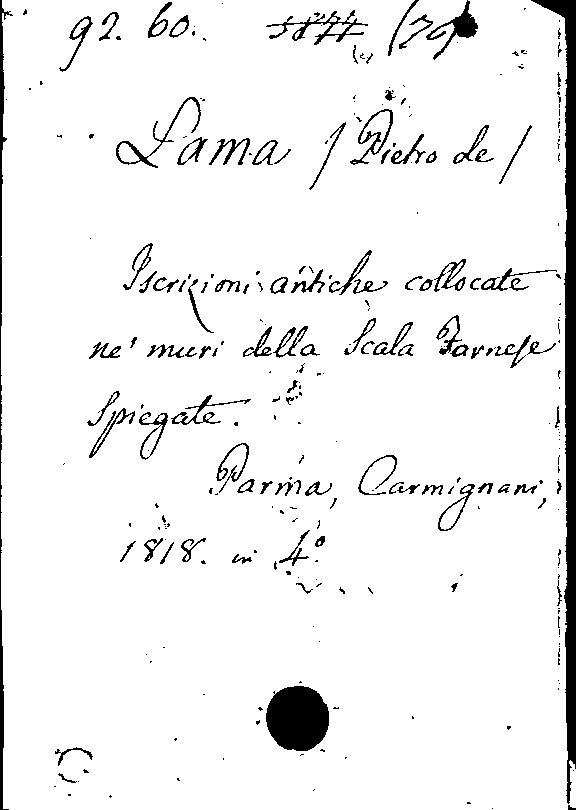 92. 60. 5877 (79)
Lama / Pietro de /
Iscrizioni antiche collocate
ne' muri della Scala Farnese
Spiegate.
Parma, Carmignani,
1818. in 4°